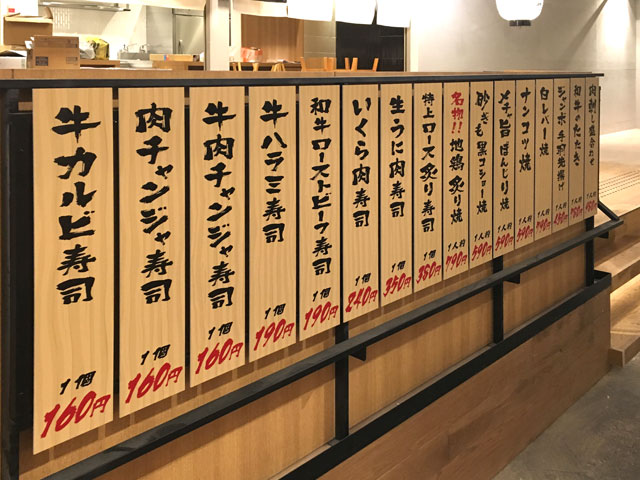 牛カルビ寿司
1個
160円
肉チャンジャ寿司
1個
160円
牛肉チャンジャ寿司
1個
160円
牛ハラミ寿司
1個
190円
和牛ローストビーフ寿司
1個
190円
いくら肉寿司
1個
240円
生うに肉寿司
1個
350円
特上ロース炙り寿司
1個
380円
名物!!地鶏炙り焼
1人前
790円
砂ぎも黒コショー焼
1人前
590円
メチャ旨ぼんじり焼
1人前
590円
ナンコツ焼
1人前
590円
白レバー焼
1人前
ジャンボ手羽先揚げ
1人前
和牛のたたき
1人前
肉刺し盛合わせ
1人前